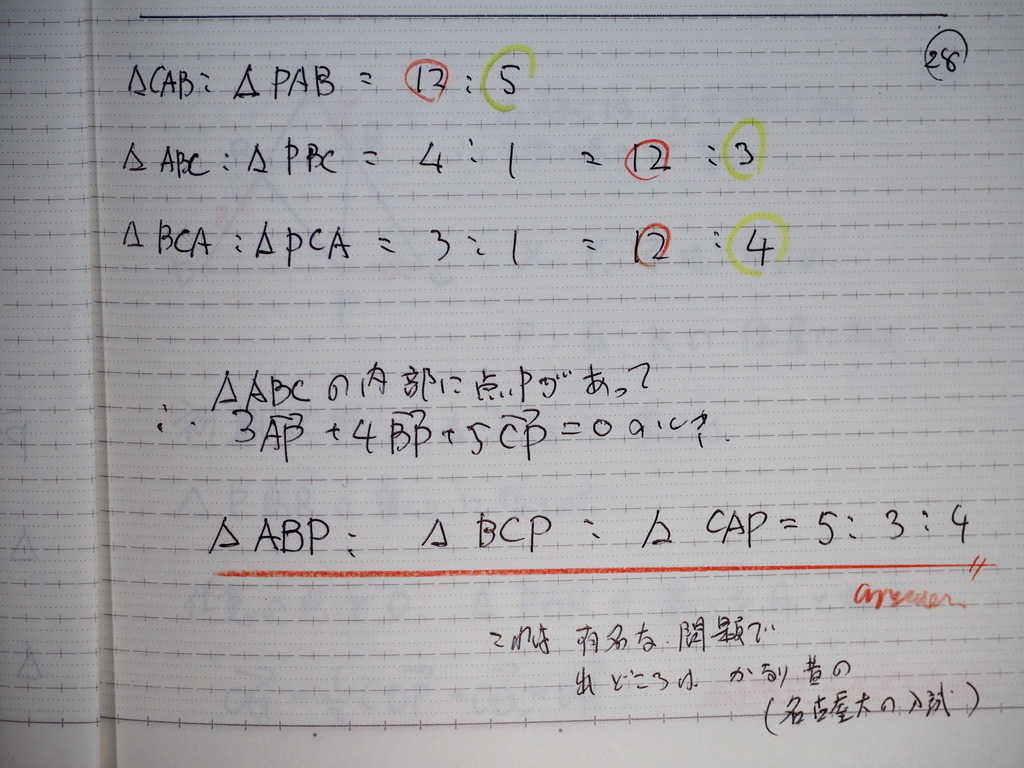 28
△CAB : △PAB = 12 : 5
△ABC : △PBC = 4 : 1 = 12 : 3
△BCA : △PCA = 3 : 1 = 12 : 4
△ABCの内部に点Pがあって
∴ 3AP→ + 4BP→ + 5CP→ = 0 のとき
△ABP : △BCP : △CAP = 5 : 3 : 4
answer
これは有名な問題で
出どころはかなり昔の
(名古屋大の入試)